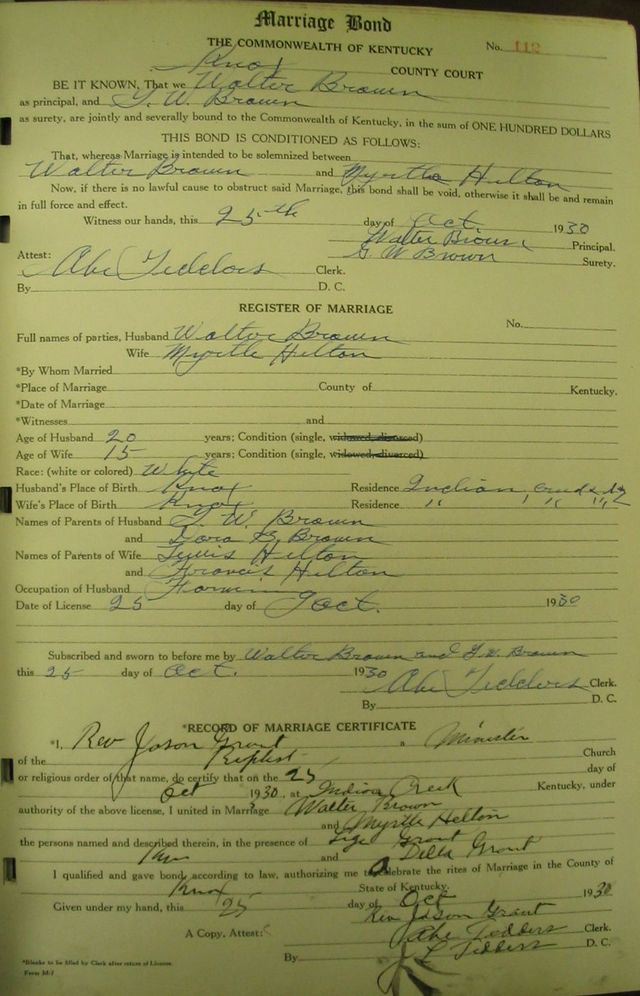 Marriage Bond
THE COMMONWEALTH OF KENTUCKY No. 112
Knox COUNTY COURT
BE IT KNOWN, That we Walter Brown
as principal, and G. W. Brown
as surety, are jointly and severally bound to the Commonwealth of Kentucky, in the sum of ONE HUNDRED DOLLARS
THIS BOND IS CONDITIONED AS FOLLOWS:
That, whereas Marriage is intended to be solemnized between
Walter Brown and Myrtle Helton
Now, if there is no lawful cause to obstruct said Marriage, this bond shall be void, otherwise it shall be and remain
in full force and effect.
Witness our hands, this 25th day of Oct. 1930
Walter Brown Principal.
G. W Brown Surety.
Attest:
Abe Tedders Clerk.
By D. C.
REGISTER OF MARRIAGE
No.
Full names of parties, Husband Walter Brown
Wife Myrtle Helton
*By Whom Married
*Place of Marriage County of Kentucky.
*Date of Marriage
*Witnesses and
Age of Husband 20 years; Condition (single, widowed, divorced)
Age of Wife 15 years; Condition (single, widowed, divorced)
Race: (white or colored) White
Husband's Place of Birth Knox Residence Indian Creek Ky
Wife's Place of Birth Knox Residence " " " "
Names of Parents of Husband G. W. Brown
and Dora B. Brown
Names of Parents of Wife Lewis Helton
and Francis Helton
Occupation of Husband
Date of License 25 day of Oct. 1930
Subscribed and sworn to before me by Walter Brown and G. W. Brown
this 25 day of Oct. 1930
Abe Tedders Clerk.
By D. C.
*RECORD OF MARRIAGE CERTIFICATE
*I, Rev Jason Grant a Minister
of the Baptist Church
or religious order of that name, do certify that on the 25 day of
Oct 1930, at Indian Creek Kentucky, under
authority of the above license, I united in Marriage Walter Brown
and Myrtle Helton
the persons named and described therein, in the presence of Grant
and Della Grant
I qualified and gave bond according to law, authorizing me to celebrate the rites of Marriage in the County of
Knox State of Kentucky.
Given under my hand, this 25 day of Oct 1930
Rev Jason Grant
A Copy, Attest: Abe Tedders Clerk.
By L Tedders D. C.
*Blanks to be filled by Clerk after return of License.
Form M-1